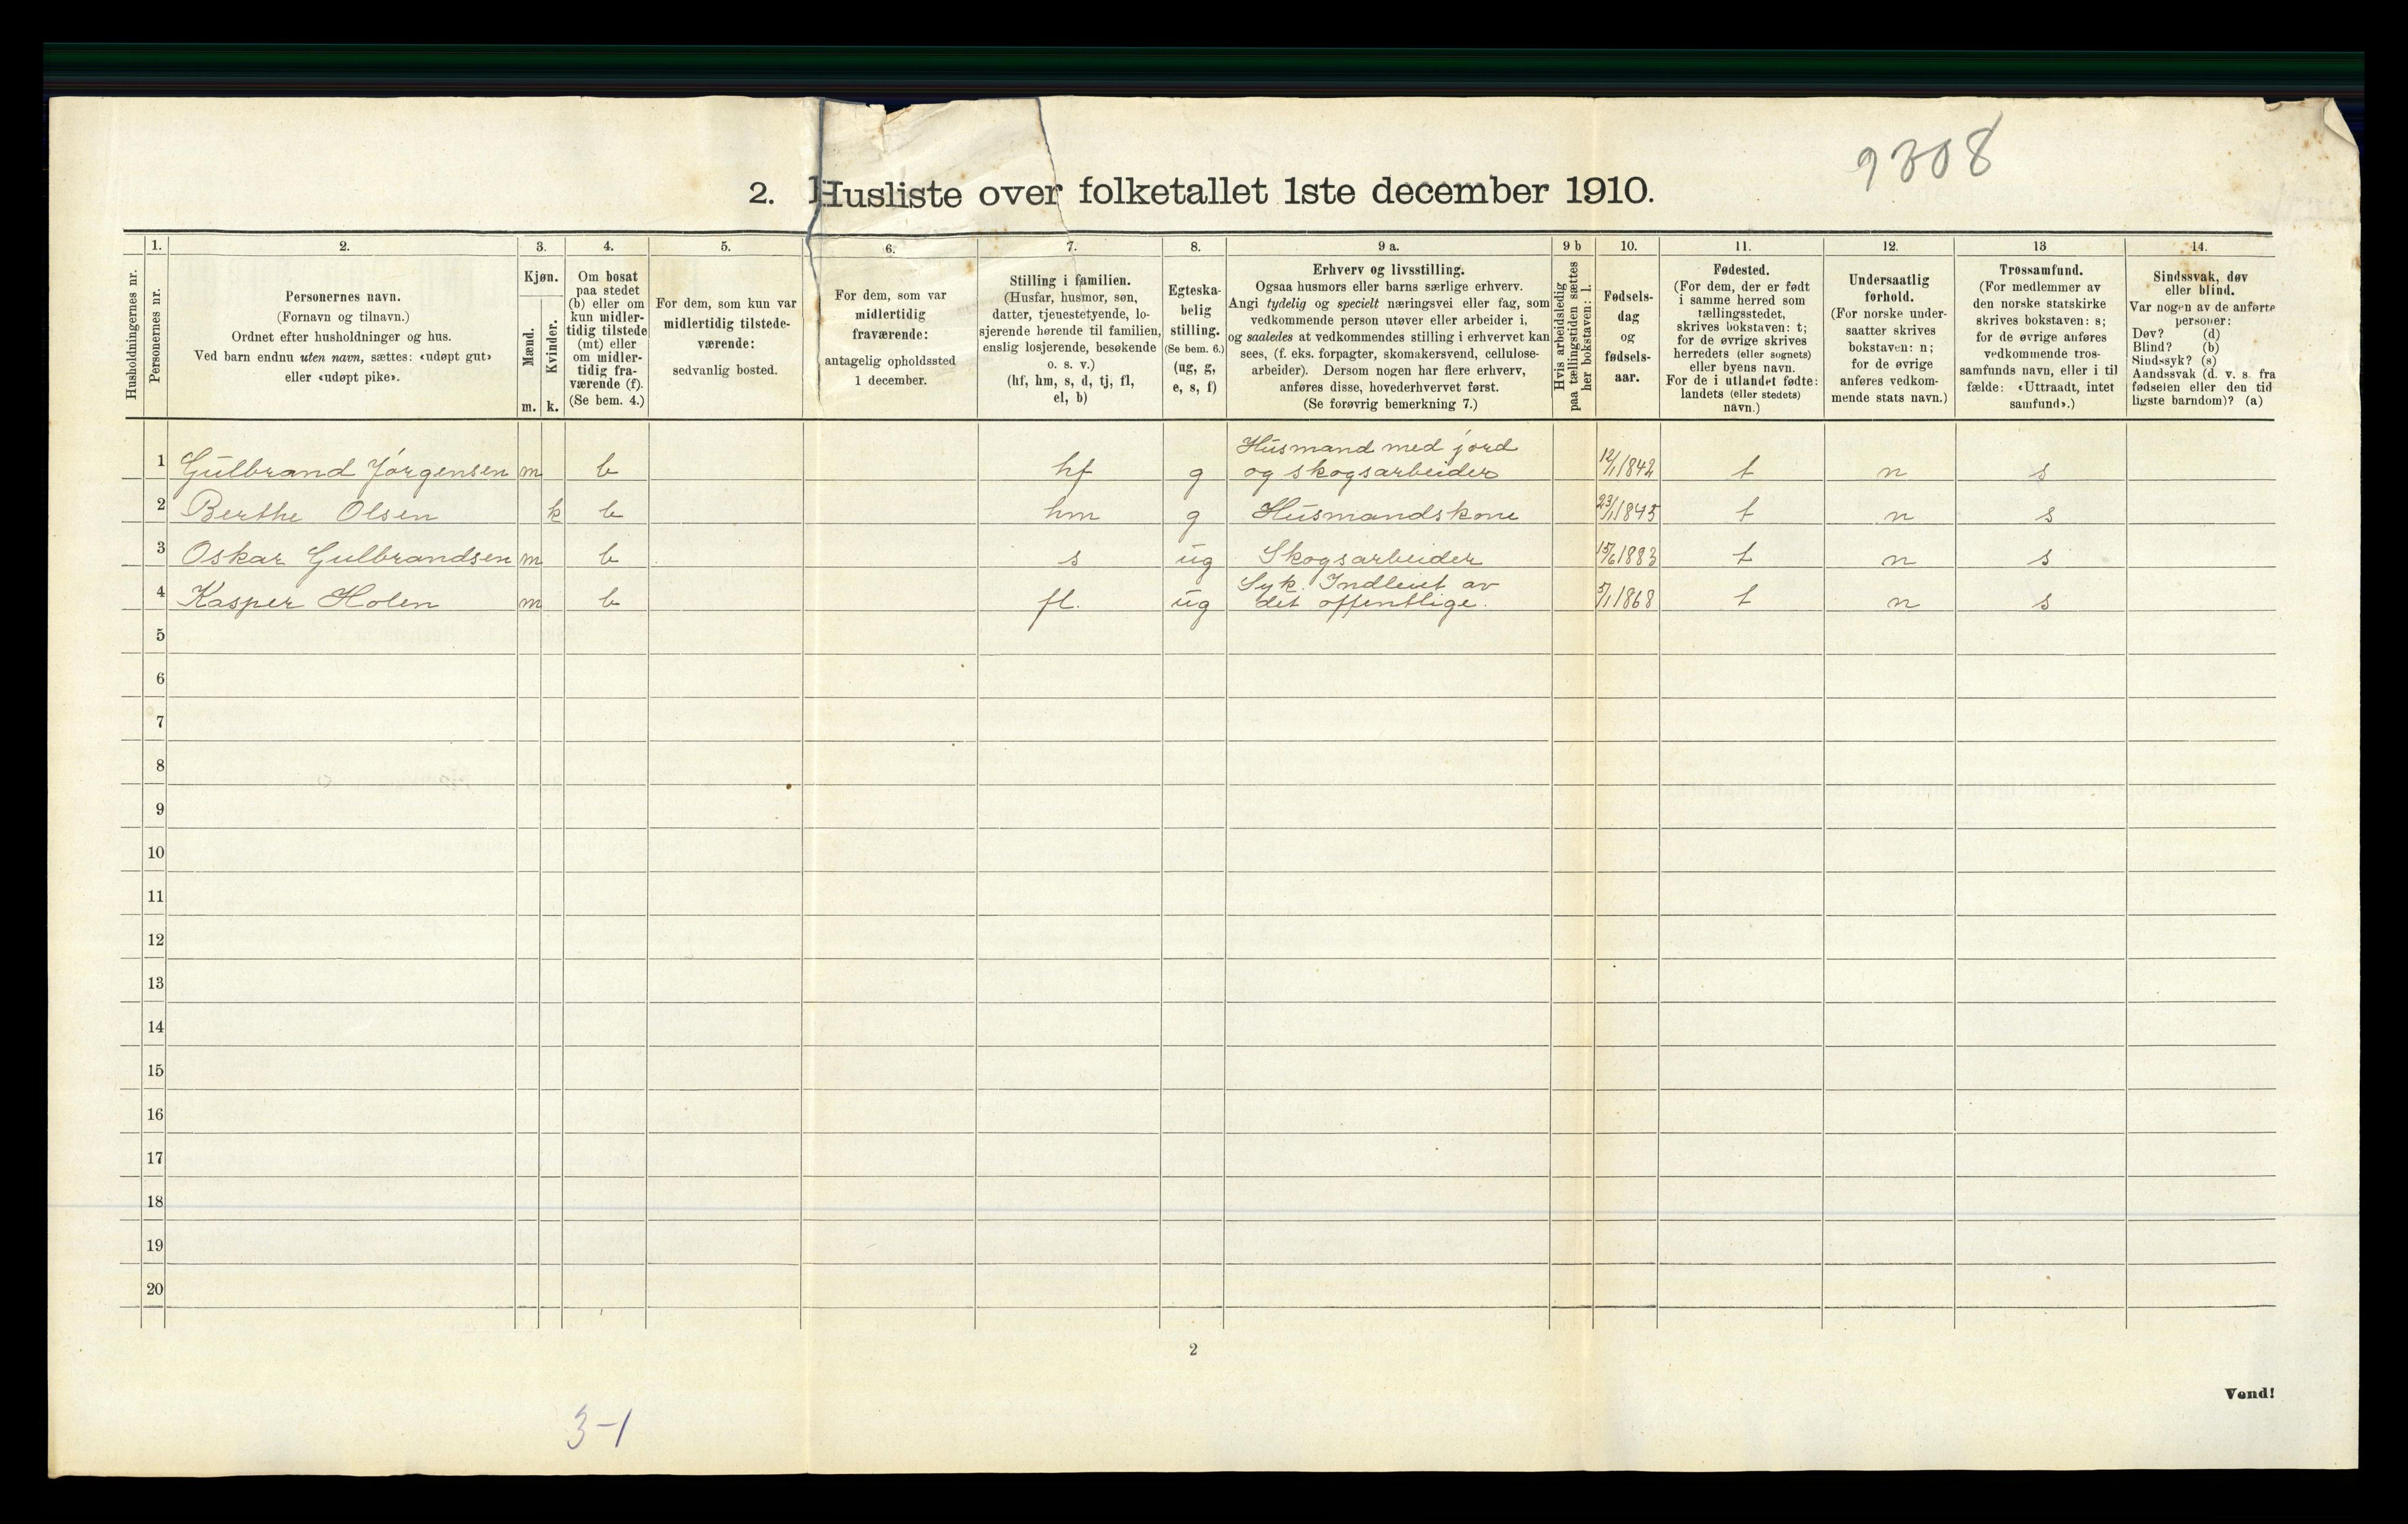 9308
2. Husliste over folketallet 1ste december 1910.
Husholdningernes nr.
1.
Personernes nr.
2.
Personernes navn.
(Fornavn og tilnavn.)
Ordnet efter husholdninger og hus.
Ved barn endnu uten navn, sættes: «udøpt gut»
eller «udøpt pike».
3.
Kjøn.
Mænd.
Kvinder.
m. k.
4.
Om bosat
paa stedet
(b) eller om
kun midler-
tidig tilstede
(mt) eller
om midler-
tidig fra-
værende (f).
(Se bem. 4.)
5.
For dem, som kun var
midlertidig tilstede-
værende:
sedvanlig bosted.
6.
For dem, som var
midlertidig
fraværende:
antagelig opholdssted
1 december.
7.
Stilling i familien.
(Husfar, husmor, søn,
datter, tjenestetyende, lo-
sjerende hørende til familien,
enslig losjerende, besøkende
o. s. v.)
(hf, hm, s, d, tj, fl,
el, b)
8.
Egteska-
belig
stilling.
(Se bem. 6.)
(ug, g,
e, s, f)
9 a.
Erhverv og livsstilling.
Ogsaa husmors eller barns særlige erhverv.
Angi tydelig og specielt næringsvei eller fag, som
vedkommende person utøver eller arbeider i,
og saaledes at vedkommendes stilling i erhvervet kan
sees, (f. eks. forpagter, skomakersvend, cellulose-
arbeider). Dersom nogen har flere erhverv,
anføres disse, hovederhvervet først.
(Se forøvrig bemerkning 7.)
9 b
Hvis arbeidsledig
paa tællingstiden sættes
her bokstaven: l.
10.
Fødsels-
dag
og
fødsels-
aar.
11.
Fødested.
(For dem, der er født
i samme herred som
tællingsstedet,
skrives bokstaven: t;
for de øvrige skrives
herredets (eller sognets)
eller byens navn.
For de i utlandet fødte:
landets (eller stedets)
navn.)
12.
Undersaatlig
forhold.
(For norske under-
saatter skrives
bokstaven: n;
for de øvrige
anføres vedkom-
mende stats navn.)
13
Trossamfund.
(For medlemmer av
den norske statskirke
skrives bokstaven: s;
for de øvrige anføres
vedkommende tros-
samfunds navn, eller i til
fælde: «Uttraadt, intet
samfund».)
14.
Sindssvak, døv
eller blind.
Var nogen av de anførte
personer:
Døv? (d)
Blind? (b)
Sindssyk? (s)
Aandssvak (d. v. s. fra
fødselen eller den tid
ligste barndom)? (a)
1 Gulbrand Jørgensen m b hf g Husmand med jord
og skogsarbeider 12/1 1842 t n s
2 Berthe Olsen k b hm g Husmandskone 23/1 1845 t n s
3 Oskar Gulbrandsen m b s ug Skogsarbeider 15/6 1883 t n s
4 Kasper Holen m b fl. ug Syk. Indleiet av
det offentlige. 5/1 1868 t n s
5
6
7
8
9
10
11
12
13
14
15
16
17
18
19
20
2
Vend!
3-1